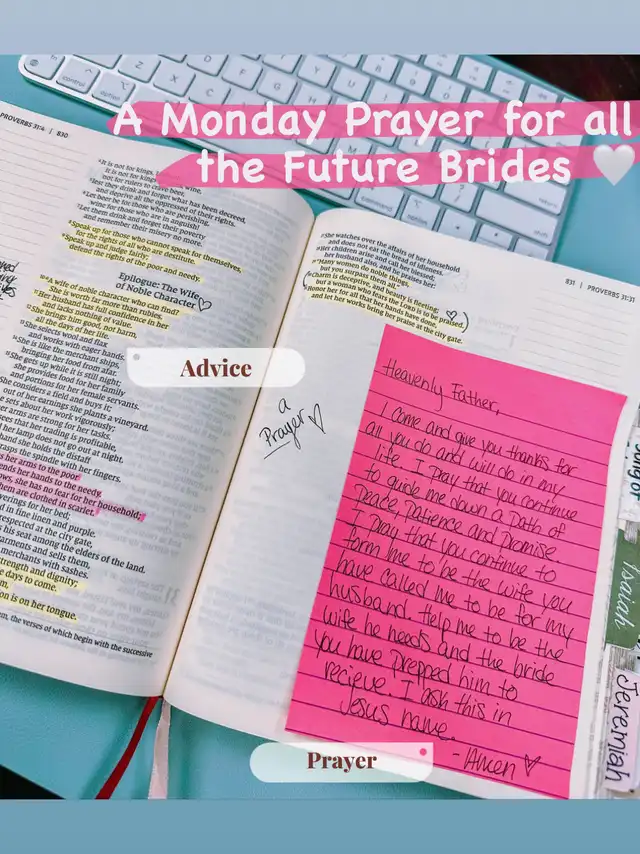 A Monday Prayer for all
the Future Brides 🤍
PROVERBS 31:4 | 830
4 It is not for kings,
it is not for kings wine,
not for rulers to crave beer,
5 lest they drink and forget what has been decreed,
and deprive all the oppressed of their rights.
6 Let beer be for those who are perishing,
wine for those who are in anguish!
7 Let them drink and forget their poverty
and remember their misery no more.
8 Speak up for those who cannot speak for themselves,
for the rights of all who are destitute.
9 Speak up and judge fairly;
defend the rights of the poor and needy.
Epilogue: The Wife
of Noble Character
10 A wife of noble character who can find?
She is worth far more than rubies.
11 Her husband has full confidence in her
and lacks nothing of value.
12 She brings him good, not harm,
all the days of her life.
13 She selects wool and flax
and works with eager hands.
14 She is like the merchant ships,
bringing her food from afar.
15 She gets up while it is still night;
she provides food for her family
and portions for her female servants.
She considers a field and buys it;
out of her earnings she plants a vineyard.
e sets about her work vigorously;
er arms are strong for her tasks.
sees that her trading is profitable,
d her lamp does not go out at night.
hand she holds the distaff
rasps the spindle with her fingers.
s her arms to the poor
ends her hands to the needy.
ows, she has no fear for her household;
hem are clothed in scarlet.
verings for her bed;
d in fine linen and purple.
respected at the city gate,
s his seat among the elders of the land.
arments and sells them,
merchants with sashes.
trength and dignity;
e days to come.
m,
ion is on her tongue.
em, the verses of which begin with the successive
Advice
831 | PROVERBS 31:31
27 She watches over the affairs of her household
and does not eat the bread of idleness.
28 Her children arise and call her blessed;
her husband also, and he praises her:
29 "Many women do noble things,
but you surpass them all."
30 Charm is deceptive, and beauty is fleeting;
but a woman who fears the LORD is to be praised.
31 Honor her for all that her hands have done,
and let her works bring her praise at the city gate.
a
Prayer
Heavenly Father,
I come and give you thanks for
all you do and will do in my
life. I pray that you continue
to guide me down a path of
Peace, Patience and Promise.
I pray that you continue to
form me to be the wife you
have called me to be for my
husband. Help me to be the
wife he needs and the bride
you have prepped him to
recipve. I ask this in
Jesus name.
- Amen
Prayer
Isaiah
Jeremiah